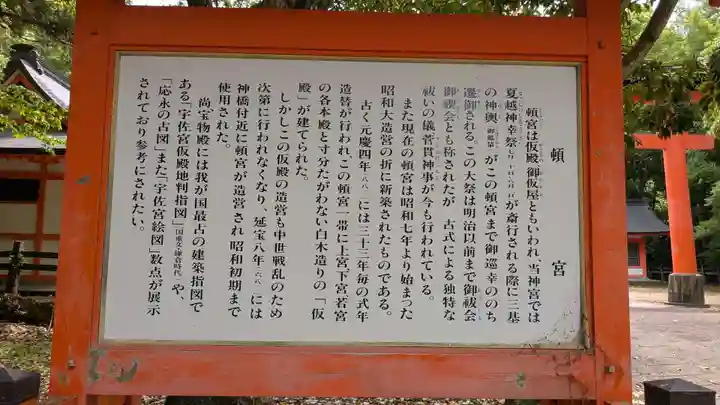 頓宮
頓宮は仮殿・御仮屋ともいわれ、当神宮では
夏越神幸祭が斎行される際に三基
の神輿がこの頓宮まで御巡幸ののち
還御されるこの大祭は明治以前まで御祓会
御禊会とも称されたが 古式による独特な
祓いの儀菅貫神事が今も行われている。
また現在の頓宮は昭和七年より始まった
昭和大造営の折に新築されたものである。
古く元慶四年には三十三年毎の式年
造替が行われこの頓宮一帯に上宮下宮若宮
の各本殿と寸分たがわない白木造りの「仮
殿」が建てられた。
しかしこの仮殿の造営も中世戦乱のため
次第に行われなくなり、延宝八年には
神橋付近に頓宮が造営され昭和初期まで
使用された。
尚宝物殿には我が国最古の建築指図で
ある「宇佐宮仮殿地判指図」国重文・鎌倉時代や、
「応永の古図」また「宇佐宮絵図」数点が展示
されており参考にされたい。